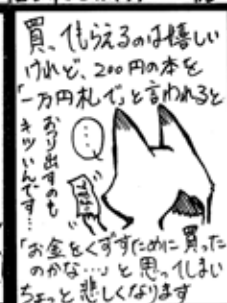 買ってもらえるのは嬉しい
けれど、200円の本を
「一万円札で」と言われると
おつり出すのも
キツいんです…
…
「お金をくずすために買った
のかな…」と思ってしまい
ちょっと悲しくなります